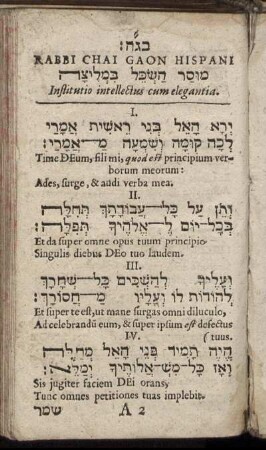 בגה׃
RABBI CHAI GAON HISPANI
מוסר השכל במליצה
Institutio intellectus cum elegantia.
I.
ירא האל בני ראשית אמרי
לכה קומה ושמעה מ־אמרי׃
Time DEum, fili mi, quod est principium ver-
borum meorum:
Ades, surge, & audi verba mea.
II.
ותן על כל־עבודתך תחלה
בכל־יום ל־אלהיך תפלה׃
Et da super omne opus tuum principio
Singulis diebus DEo tuo laudem.
III.
ועליך להשכים כל־שחרך
להודות לו ועליו מ־חסורך׃
Et super te est, ut mane surgas omni diluculo,
Ad celebrandū eum, & super ipsum est defectus
IV. (tuus.
היה תמיד פני האל מחלה
ואז כל־מש־אלותיך ימלא׃
Sis jugiter faciem DEi orans,
Tunc omnes petitiones tuas implebit.
A 2 שמר